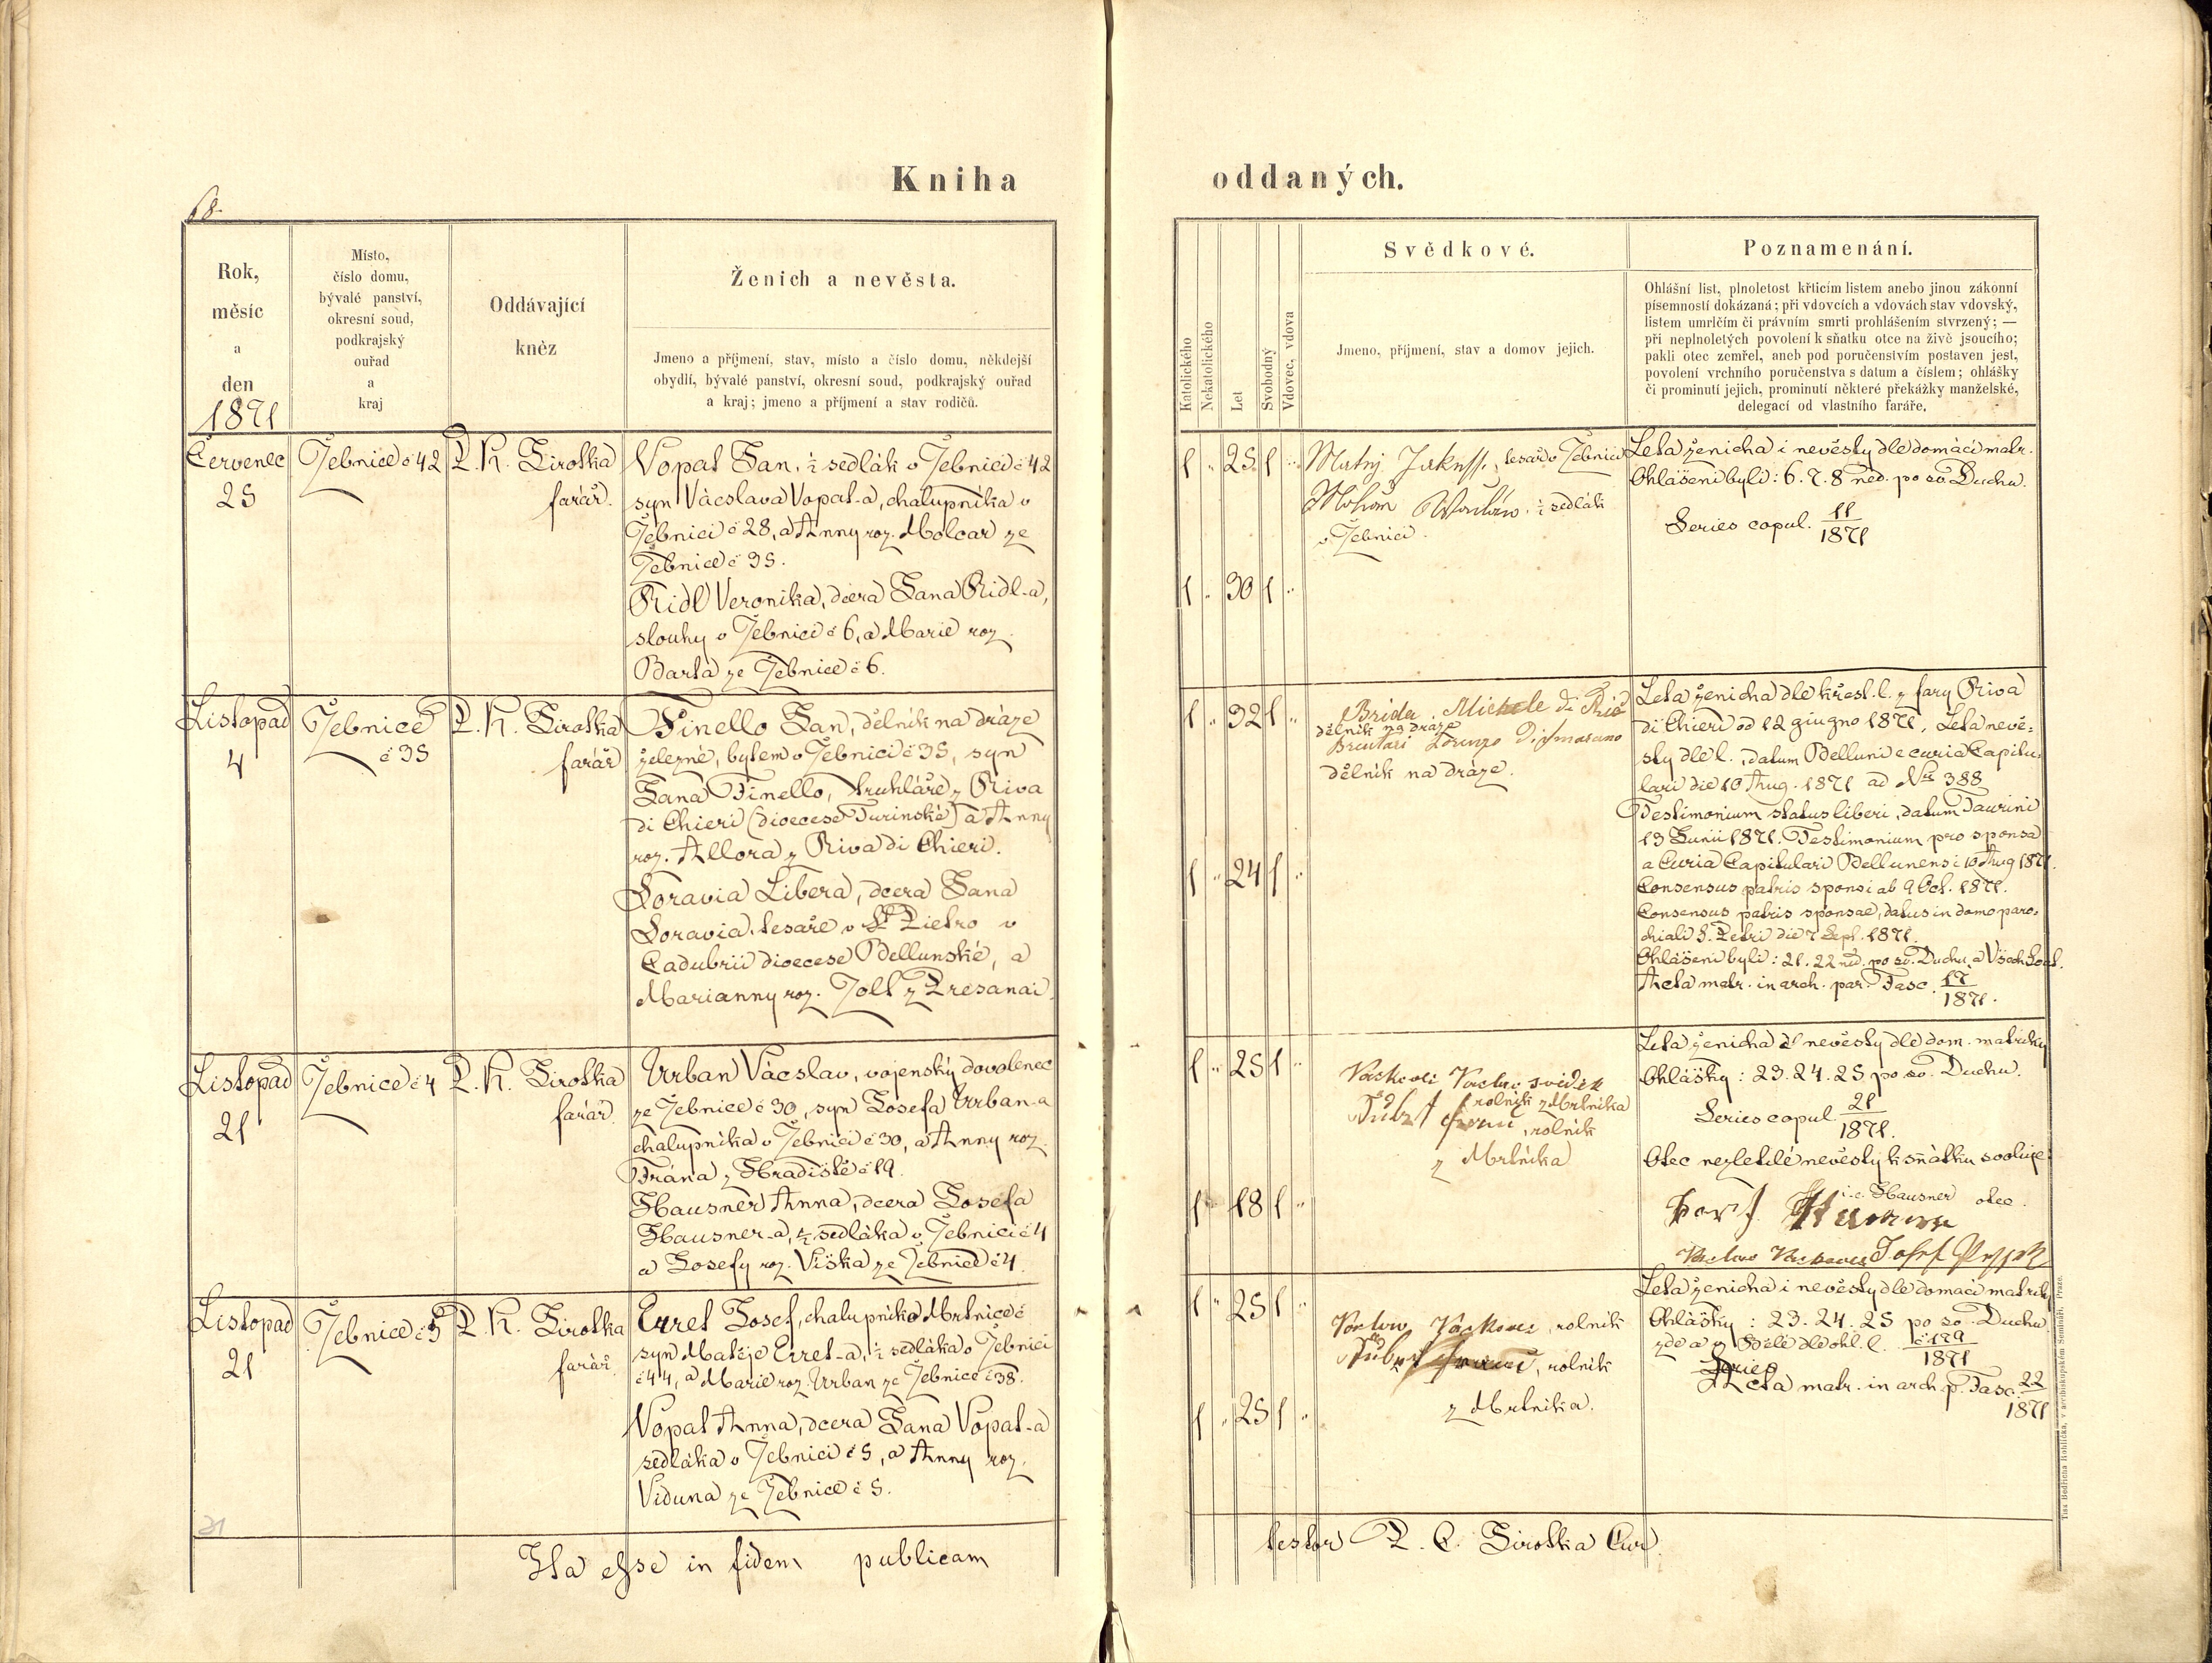 Kniha oddaných.
68.
Rok,
měsíc
a
den
1871
Místo,
číslo domu,
bývalé panství,
okresní soud,
podkrajský
ouřad
a
kraj
Oddávající
kněz
Ženich a nevěsta.
Jmeno a příjmení, stav, místo a číslo domu, někdejší
obydlí, bývalé panství, okresní soud, podkrajský ouřad
a kraj; jmeno a příjmení a stav rodičů.
Katolického
Nekatolického
Let
Svobodný
Vdovec, vdova
Svědkové.
Jmeno, příjmení, stav a domov jejich.
Poznamenání.
Ohlášní list, plnoletost křticím listem anebo jinou zákonní
písemností dokázaná; při vdovcích a vdovách stav vdovský,
listem umrlčím či právním smrti prohlášením stvrzený; —
při neplnoletých povolení k sňatku otce na živě jsoucího;
pakli otec zemřel, aneb pod poručenstvím postaven jest,
povolení vrchního poručenstva s datum a číslem; ohlášky
či prominutí jejich, prominutí některé překážky manželské,
delegací od vlastního faráře.
Červenec
25
Žebnice č 42
P. K. Sirotka
farář.
Vopat Jan, ½ sedlák v Žebnici č 42
syn Vácslava Vopat-a, chalupníka v
Žebnici č 28, a Anny roz. Molcar ze
Žebnice č 35.
Ridl Veronika, dcera Jana Ridl-a,
slouhy v Žebnici č 6, a Marie roz.
Barta ze Žebnice č 6.
1 " 25 1 "
1 " 30 1 "
Matěj Jakess, tesař v Žebnici
½ sedlák
v Žebnici.
Leta ženicha i nevěsty dle domácí matr.
Ohlášeni byli: 6. 7. 8 ned. po sv. Duchu.
Series copul. 11/1871
Listopad
4
Žebnice
č 35
P. K. Sirotka
farář
Finello Jan, dělník na dráze
železné, bytem v Žebnici č 35, syn
Jana Finello, truhláře z Riva
di Chieri (dioecese Turinské) a Anny
roz. Allora z Riva di Chieri.
Soravia Libera, dcera Jana
Soravia, tesaře v St Pietro v
Cadubrii dioecese Bellunské, a
Marianny roz. Jolt z Presanai.
1 " 32 1 "
1 " 24 1 "
Brida Michele di Rió
dělník na dráze
Brentari Lorenzo Di Smarano
dělník na dráze.
Leta ženicha dle křest. l. z fary Riva
di Chieri od 12 giugno 1871, Leta nevě=
sty dle l., datum Belluni e curia Capitu=
lari die 10 Aug. 1871 ad Nus 388
Testimonium status liberi, datum Taurini
13 Junii 1871. Testimonium pro sponsa
a Curia Capitulari Bellunensi 10 Aug 1871.
Consensus patris sponsi ab 9 Oct. 1871.
Consensus patris sponsae, datus in domo paro=
chiali S. Petri die 7 Sept. 1871.
Ohlášeni byli: 21. 22 ned. po sv. Duchu a Všech Svat.
Acta matr. in arch. par. Fasc. 17/1871.
Listopad
21
Žebnice č 4
P. K. Sirotka
farář.
Urban Vácslav, vojenský dovolenec
ze Žebnice č 30, syn Josefa Urban-a
chalupníka v Žebnici č 30, a Anny roz.
Frána z Hradiště č 19.
Hausner Anna, dcera Josefa
Hausner-a, ½ sedláka v Žebnici č 4
a Josefy roz. Viška ze Žebnice č 4.
1 " 25 1 "
1 " 18 1 "
Vaclav svědek
rolník z Mrtníka
rolník
z Mrtníka
Leta ženicha i nevěsty dle dom. matriky
Ohlášky: 23. 24. 25 po sv. Duchu.
Series copul. 21/1871.
Otec nezletilé nevěsty k sňatku svoluje:
i.e. Hausner otec.
Josef
Listopad
21
Žebnice č 5
P. K. Sirotka
farář.
Erret Josef, chalupník v Mrtnice č
syn Matěje Erret-a, ½ sedláka v Žebnici
č 44, a Marie roz. Urban ze Žebnice č 38.
Vopat Anna, dcera Jana Vopat-a
sedláka v Žebnici č 5, a Anny roz.
Viduna ze Žebnice č 5.
1 " 25 1 "
1 " 25 1 "
rolník
, rolník
z Mrtníka.
Leta ženicha i nevěsty dle domácí matriky
Ohlášky: 23. 24. 25 po sv. Duchu
zde a dle ohl. l. č 129/1871
Series
Acta matr. in arch p. Fasc. 22/1871
21
Ita esse in fidem publicam testor P. C. Sirotka Cur.
Tisk Bedřicha Rohlíčka, v arcibiskupském Semináři, Praze.